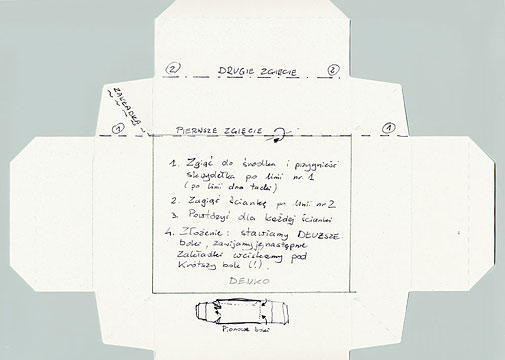 2 DRUGIE ZGIĘCIE 2
ZAKŁADKA
1 PIERWSZE ZGIĘCIE 1
1. Zgiąć do środka i przygnieść
skrzydełka po linii nr. 1
(po linii dna tacki)
2. Zagiąć ściankę po linii nr 2
3. Powtórzyć dla każdej ścianki
4. Złożenie: stawiamy DŁUŻSZE
boki, zawijamy je, następnie
Zakładki wciskamy pod
Krótszy bok (!).
DENKO
Pionowe boki